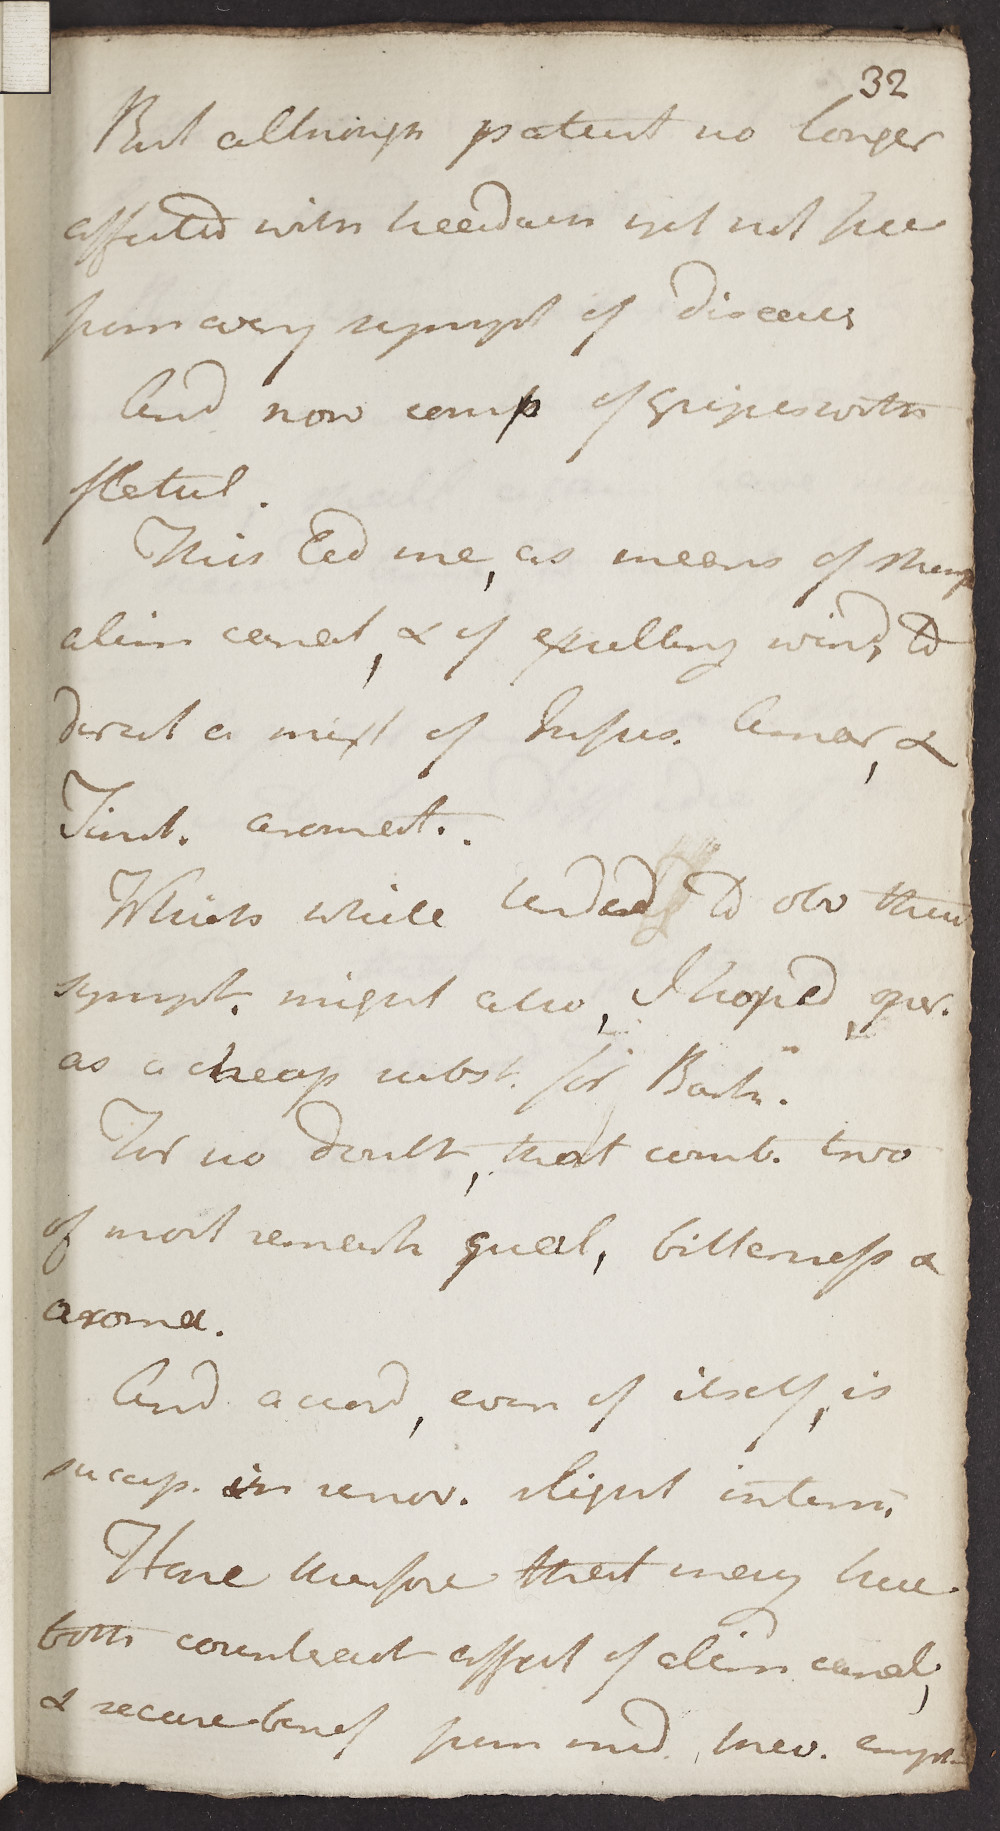 32
But although patient no longer
affected with headach yet not free
from every sympt of disease
And now comp of gripes with
flatul.
This led me, as means of streng
alim canal, & of expelling wind, to
direct a mixt of Infus. Amar, &
Tinct. aromat..
Which while tended to obv these
sympt. might also, I hoped, oper.
as a cheap subst. for Bark.
For no doubt, that comb. two
of most remark qual, bitterness &
aroma.
And accord, even of itself, is
succesp. in remov. slight interm.
Hope therefore that may here
both counteract affect of alim canal,
& secure benef from med. prev. empl.